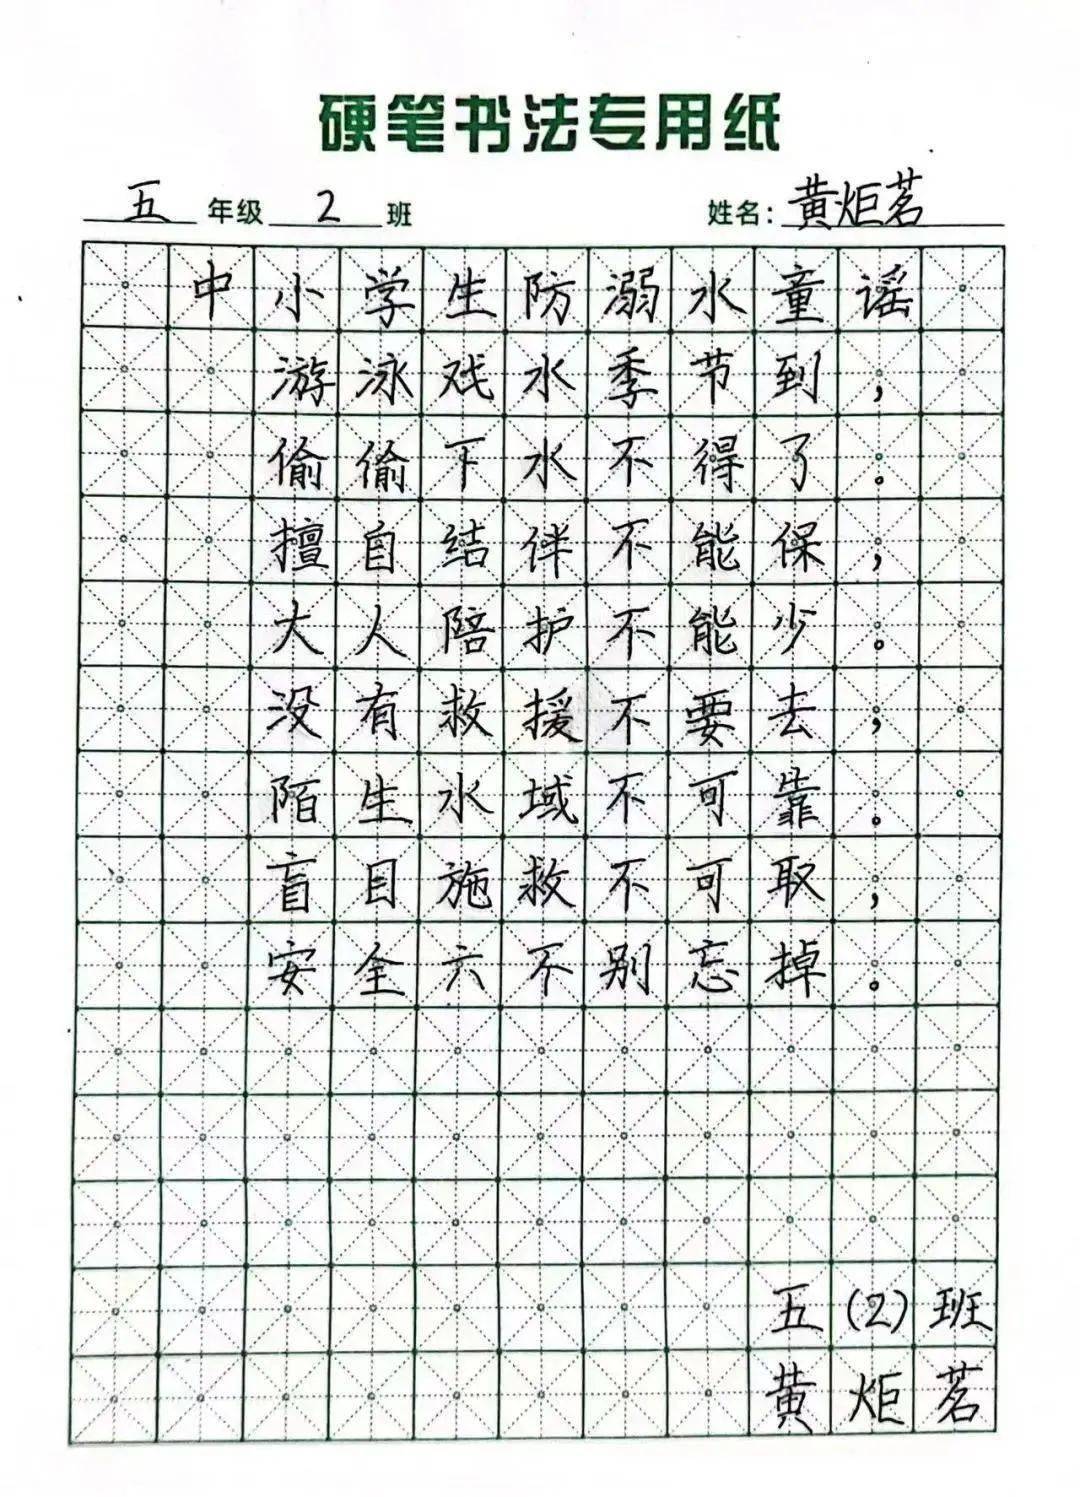 硬笔书法专用纸
五年级 2班 姓名：黄炬茗
中小学生防溺水童谣
游泳戏水季节到，
偷偷下水不得了。
擅自结伴不能保，
大人陪护不能少。
没有救援不要去，
陌生水域不可靠。
盲目施救不可取，
安全六不别忘掉。
五(2)班
黄炬茗